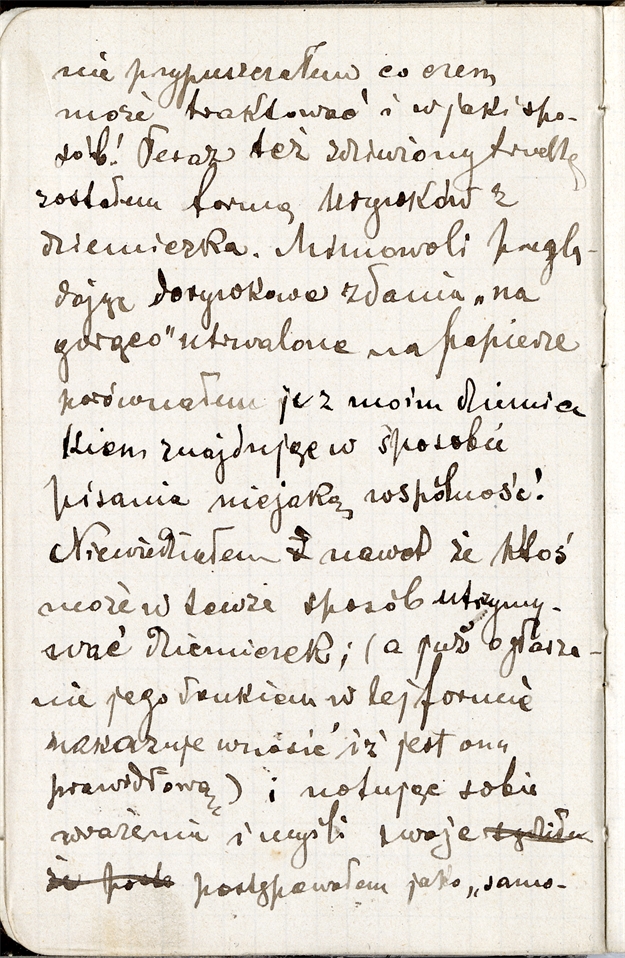 nie przypuszczałem co czem
może traktować i w jaki spo-
sób! Teraz też zdziwiony trochę
zostałem formą urywków z
dzienniczka. Mimowoli przeglą-
dając dorywkowe zdania „na
gorąco" utrwalone na papierze
porównałem je z moim dzienni
kiem znajdując w sposobie
pisania niejaką wspólność!
Niewiedziałem nawet że ktoś
może w tenże sposób utrzymy-
wać dzienniczek; (a już ogłasza-
nie jego drukiem w tej formie
nakazuje wnosić iż jest ona
prawidłową) i notując sobie
wrażenia i myśli swoje sądziłem
że postę postępowałem jako „samo-